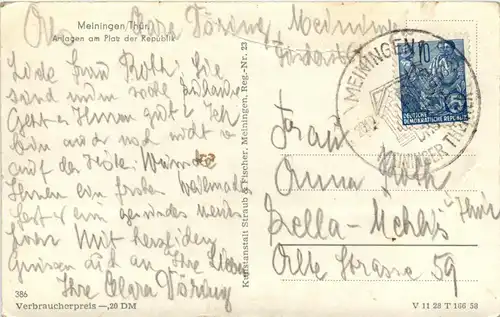 Abs. Clara Döring, Meiningen
Meiningen/Thür.
Anlagen am Platz der Republik
Liebe Frau Roth! Sie
sind nun so zu Hause
Geht es Ihnen gut? Ich
bin auch noch nicht
auf der Höhe. Wünsche
Ihnen ein frohes Weihnachts
Fest u. ein gesundes neues
Jahr. Mit herzlichen
Grüssen auch an Ihre Lieben
Ihre Clara Döring
386
Verbraucherpreis —,20 DM
Kunstanstalt Straub & Fischer, Meiningen, Reg.-Nr. 23
MEININGEN
10
DEUTSCHE
DEMOKRATISCHE REPUBLIK
Frau
Anna Roth
Zella-Mehlis
Thür
Alte Strasse 59
V 11 28 T 166 58